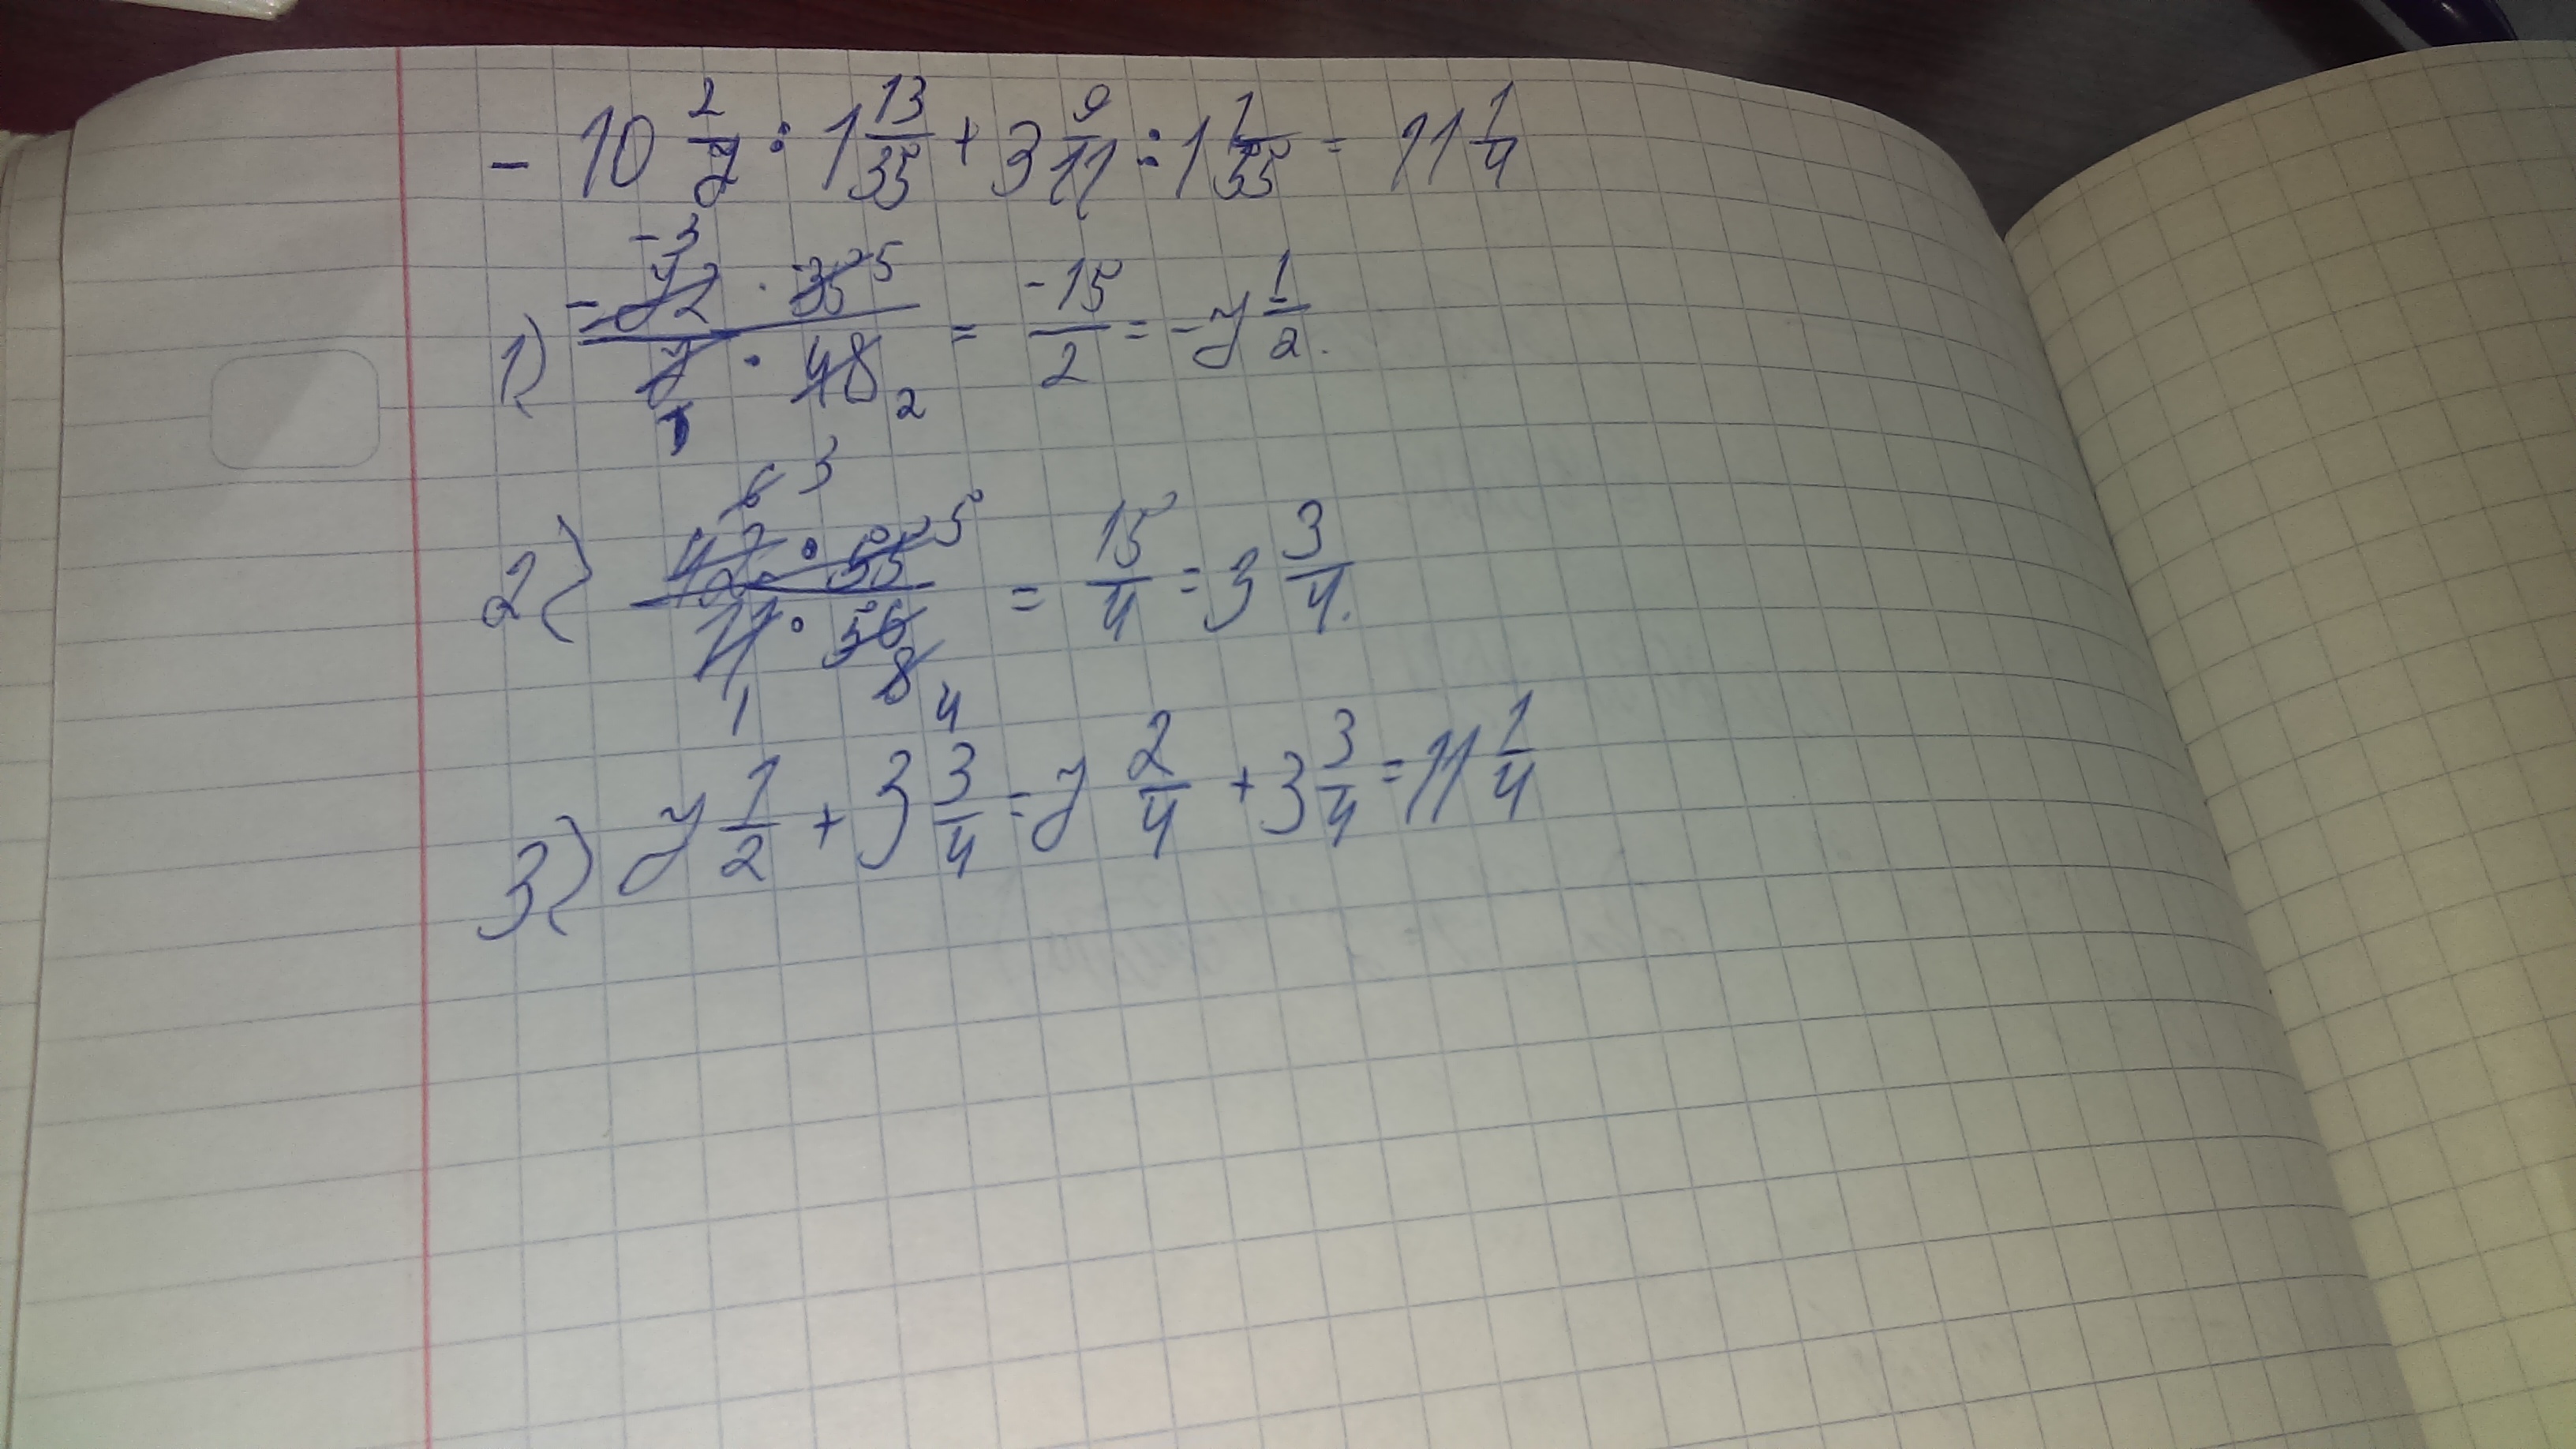 - 10 2/7 : 1 13/35 + 3 9/11 : 1 1/55 = 11 1/4
1) -72 · 35 / 7 · 48 = -15/2 = -7 1/2.
2) 42 · 55 / 11 · 56 = 15/4 = 3 3/4.
3) 7 1/2 + 3 3/4 = 7 2/4 + 3 3/4 = 11 1/4